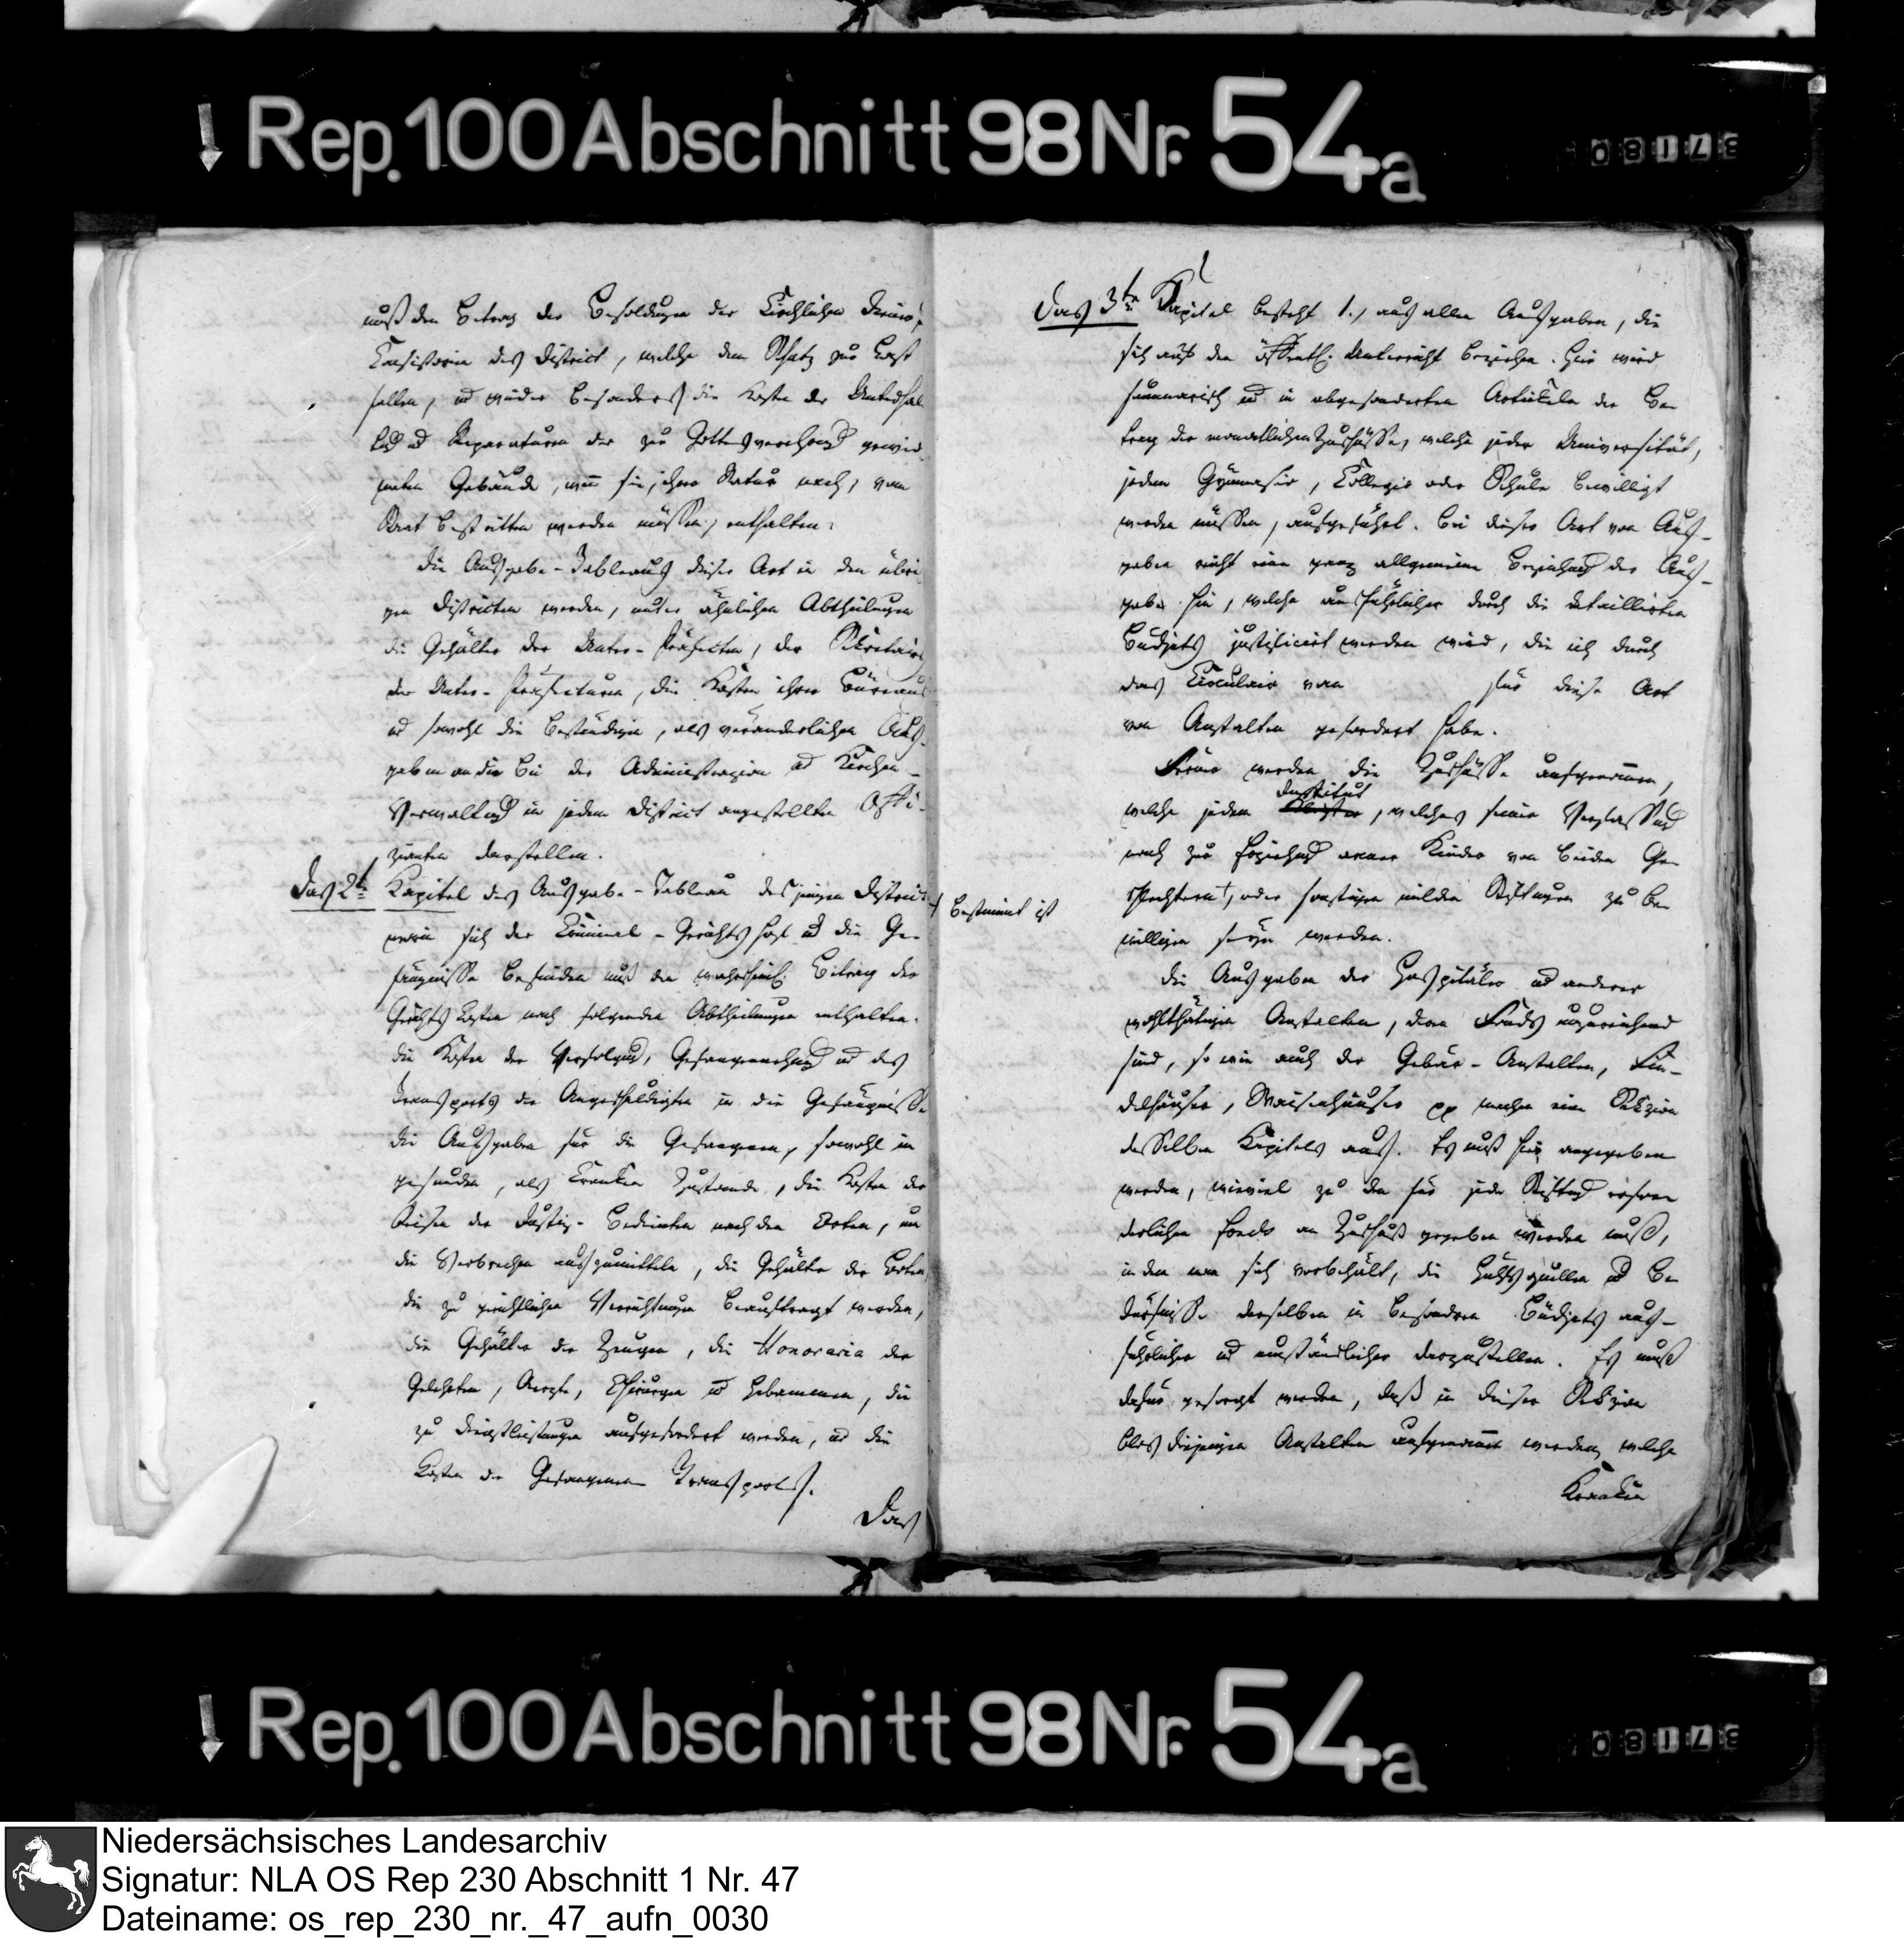 Rep. 100 Abschnitt 98 Nr. 54a
muß den Betrag der Besoldungen der Kirchlichen Diener,
Consistorien des District, welche dem Schatz zur Last
fallen, und wieder besonders die Kosten der Unterhal
tung und Reparaturen der zur Gottesverehrung gewid
meten Gebäude, wenn sie, ihrer Natur nach, vom
Staat bestritten werden müssen, enthalten.
Die Ausgabe-Tableaus dieser Art in den übri
gen Districten werden, unter ähnlichen Abtheilungen
die Gehälter der Unter-Präfecten, der Secretaire
der Unter-Präfecturen, die Kosten ihrer Büreaus
und sowohl die beständigen, als veränderlichen Aus-
gaben an die bei der Administration und Kirchen-
Verwaltung in jedem District angestellten Offi-
zianten darstellen.
Das 2te Kapitel des Ausgabe-Tableau desjenigen Districts
worin sich der Criminal-Gerichtshof und die Ge-
fängnisse befinden muß den wahrscheinl. Betrag der
Gerichtskosten nach folgenden Abtheilungen enthalten.
die Kosten der Verfolgung, Gefangennehmung und des
Transports der Angeschuldigten in die Gefängnisse
die Ausgaben für die Gefangenen, sowohl im
gesunden, als kranken Zustande, die Kosten der
Reisen der Justiz-Bedienten nach den Orten, um
die Verbrechen auszumitteln, die Gehälter der Boten,
die zu gerichtlichen Verrichtungen beauftragt werden,
die Gehälter der Zeugen, die Honoraria der
Gelehrten, Aerzte, Chirurgen und Hebammen, die
zu Dienstleistungen aufgefordert werden, und die
Kosten des Gefangenen Transports.
Das
Das 3te Kapitel besteht 1., aus allen Ausgaben, die
sich auf den öffentl. Unterricht beziehen. Hier wird
summarisch und in abgesonderten Artikeln der Be-
trag der monatlichen Zuschüsse, welche jeder Universität,
jedem Gymnasio, Collegio oder Schule bewilligt
werden müssen, aufgeführt. Bei dieser Art von Aus-
gaben reicht eine ganz allgemeine Beziehung der Aus-
gabe hin, welche ausführlicher durch die detaillirten
Budjets justificirt werden wird, die ich durch
das Circulair vom für diese Art
von Anstalten gefordert habe.
Ferner werden die Zuschüsse aufgenommen,
Institut
welche jedem Kloster, welches seiner Verfassung
nach zur Erziehung armer Kinder von beiden Ge-
schlechtern +, oder sonstigen milden Stiftungen zu be-
+ bestimmt ist
willigen seyn werden.
Die Ausgaben der Hospitäler und anderer
wohlthätigen Anstalten, deren Fonds unzureichend
sind, so wie auch der Gebär-Anstalten, Fin-
delhäuser, Waisenhäuser pp machen eine Section
desselben Kapitels aus. Es muß hier angegeben
werden, wieviel zu den für jede Stiftung erfor
derlichen Fonds an Zuschuß gegeben werden muß,
indem man sich vorbehält, die Hülfsquellen und Be-
dürfnisse derselben in besondren Budjets aus-
führlicher und umständlicher darzustellen. Es muß
dafür gesorgt werden, daß in dieser Section
blos diejenigen Anstalten aufgenommen werden, welche
Kranken
Rep. 100 Abschnitt 98 Nr. 54a
Niedersächsisches Landesarchiv
Signatur: NLA OS Rep 230 Abschnitt 1 Nr. 47
Dateiname: os_rep_230_nr._47_aufn_0030